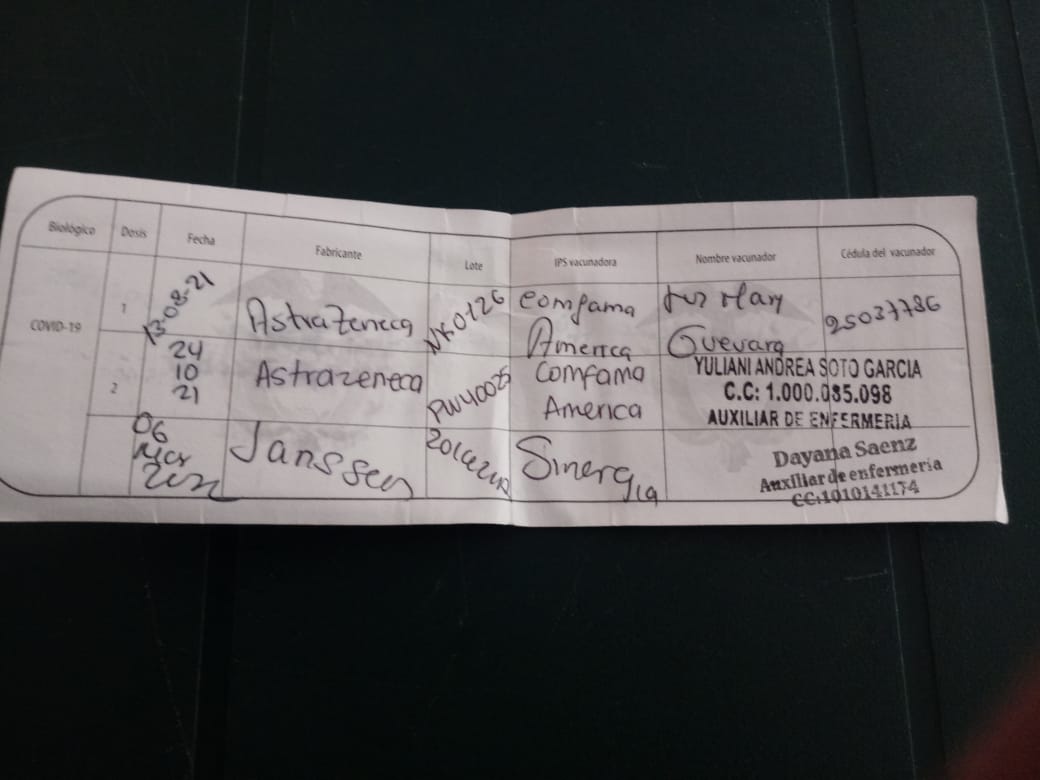 Biológico Dosis Fecha Fabricante Lote IPS vacunadora Nombre vacunador Cédula del vacunador
COVID-19
1 13-08-21 AstraZeneca NK0126 comfama America Luz Mary Guevara 25037736
2 24 10 21 Astrazeneca PW40025 comfama America
YULIANI ANDREA SOTO GARCIA
C.C: 1.000.085.098
AUXILIAR DE ENFERMERIA
06 Janssen Sinergia
Dayana Saenz
Auxiliar de enfermería
CC:1010141174